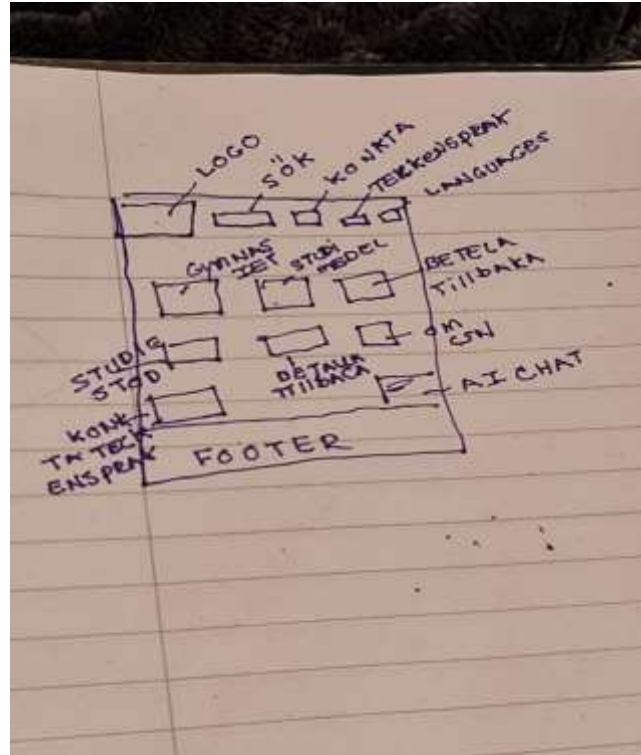 LOGO
SÖK
KONKTA
TEKKENSPRAK
LANGUAGES
GYMNAS
IET
STUDI
MEDEL
BETELA
TillBAKA
STUDIE
STOD
BETALLA
TIllBACA
OM
CSN
KONK
TA TECK
ENSPRAK
AI CHAT
FOOTER